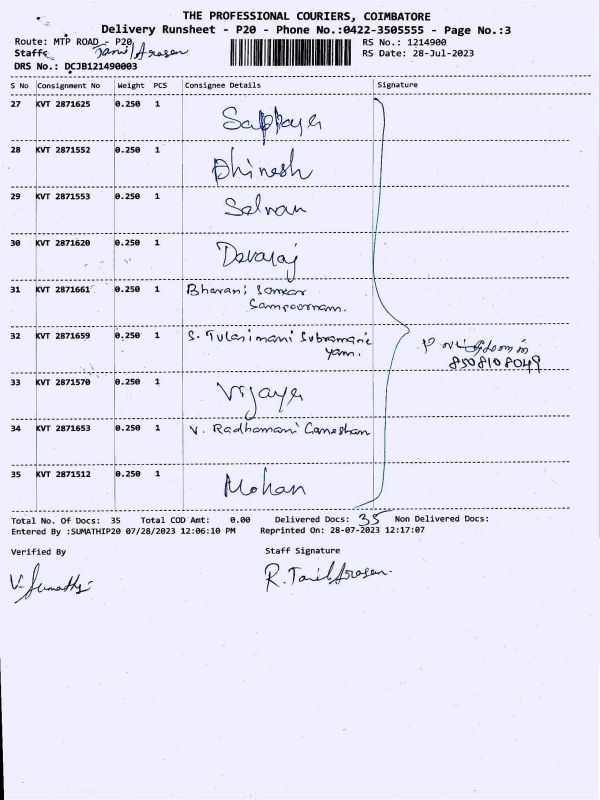 THE PROFESSIONAL COURIERS, COIMBATORE
Delivery Runsheet - P20 - Phone No.:0422-3505555 - Page No.:3
Route: MTP ROAD - P20
RS No.: 1214900
Staff: Tamil Arasan
RS Date: 28-Jul-2023
DRS No.: DCJB121490003
S No Consignment No Weight PCS Consignee Details Signature
27 KVT 2871625 0.250 1
28 KVT 2871552 0.250 1 Dhinesh
29 KVT 2871553 0.250 1 Selvan
30 KVT 2871620 0.250 1 Devaraj
31 KVT 2871661 0.250 1 Bharani Sankar
Sampoornam.
32 KVT 2871659 0.250 1 S. Tulasimani Subramani
yam.
8508108049
33 KVT 2871570 0.250 1 Vijaya
34 KVT 2871653 0.250 1 V. Radhamani Ganeshan
35 KVT 2871512 0.250 1 Mohan
Total No. Of Docs: 35 Total COD Amt: 0.00 Delivered Docs: 35 Non Delivered Docs:
Entered By :SUMATHIP20 07/28/2023 12:06:10 PM Reprinted On: 28-07-2023 12:17:07
Verified By Staff Signature
V. Sumathi R. Tamil Arasan